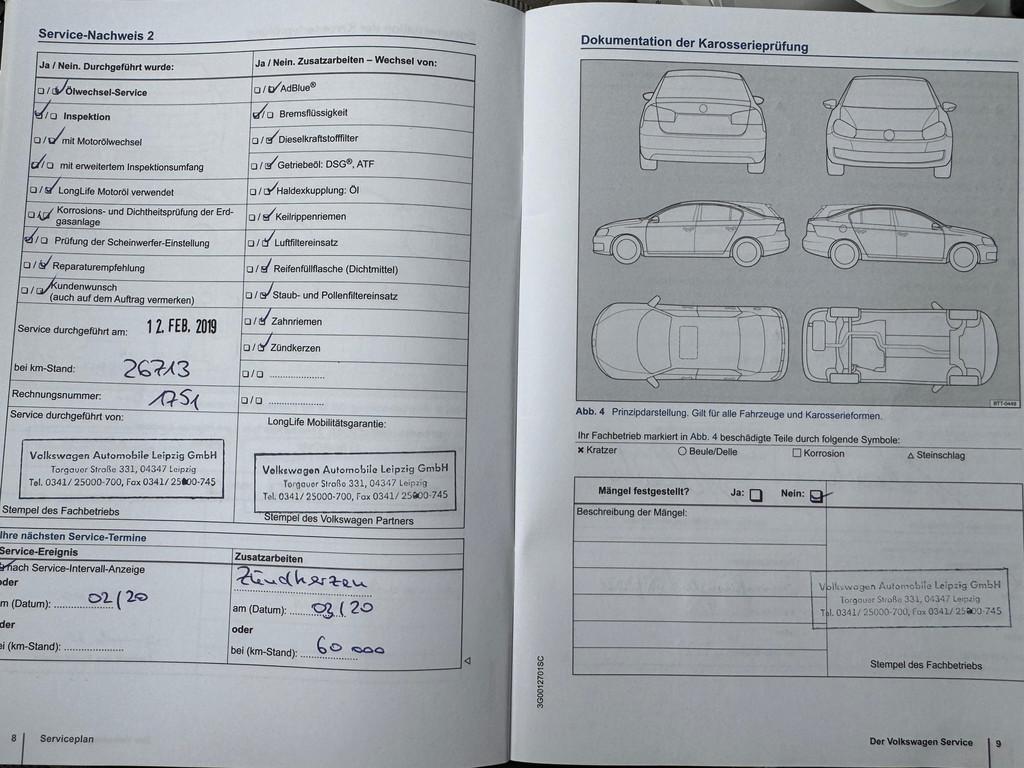 Service-Nachweis 2
Ja / Nein. Durchgeführt wurde:
☐ / ☑ Ölwechsel-Service
☑ / ☐ Inspektion
☐ / ☑ mit Motorölwechsel
☑ / ☐ mit erweitertem Inspektionsumfang
☐ / ☑ LongLife Motoröl verwendet
☐ / ☑ Korrosions- und Dichtheitsprüfung der Erd-
gasanlage
☑ / ☐ Prüfung der Scheinwerfer-Einstellung
☐ / ☑ Reparaturempfehlung
☐ / ☑ Kundenwunsch
(auch auf dem Auftrag vermerken)
Service durchgeführt am: 12. FEB. 2019
bei km-Stand: 26713
Rechnungsnummer: 1751
Service durchgeführt von:
Volkswagen Automobile Leipzig GmbH
Torgauer Straße 331, 04347 Leipzig
Tel. 0341/ 25000-700, Fax 0341/ 25000-745
Stempel des Fachbetriebs
Ja / Nein. Zusatzarbeiten – Wechsel von:
☐ / ☑ AdBlue®
☑ / ☐ Bremsflüssigkeit
☐ / ☑ Dieselkraftstofffilter
☐ / ☑ Getriebeöl: DSG®, ATF
☐ / ☑ Haldexkupplung: Öl
☐ / ☑ Keilrippenriemen
☐ / ☑ Luftfiltereinsatz
☐ / ☑ Reifenfüllflasche (Dichtmittel)
☐ / ☑ Staub- und Pollenfiltereinsatz
☐ / ☑ Zahnriemen
☐ / ☑ Zündkerzen
☐ / ☐ ......................
☐ / ☐ ......................
LongLife Mobilitätsgarantie:
Volkswagen Automobile Leipzig GmbH
Torgauer Straße 331, 04347 Leipzig
Tel. 0341/ 25000-700, Fax 0341/ 25000-745
Stempel des Volkswagen Partners
Ihre nächsten Service-Termine
Service-Ereignis
nach Service-Intervall-Anzeige
oder
m (Datum): 02/20
der
ei (km-Stand): ......................
Zusatzarbeiten
Zündkerzen
am (Datum): 03/20
oder
bei (km-Stand): 60 000
8 Serviceplan
Dokumentation der Karosserieprüfung
BTT-0449
Abb. 4 Prinzipdarstellung. Gilt für alle Fahrzeuge und Karosserieformen.
Ihr Fachbetrieb markiert in Abb. 4 beschädigte Teile durch folgende Symbole:
× Kratzer ○ Beule/Delle □ Korrosion △ Steinschlag
Mängel festgestellt? Ja: ☐ Nein: ☑
Beschreibung der Mängel:
Volkswagen Automobile Leipzig GmbH
Torgauer Straße 331, 04347 Leipzig
Tel. 0341/ 25000-700, Fax 0341/ 25000-745
Stempel des Fachbetriebs
3G0012701SC
Der Volkswagen Service 9